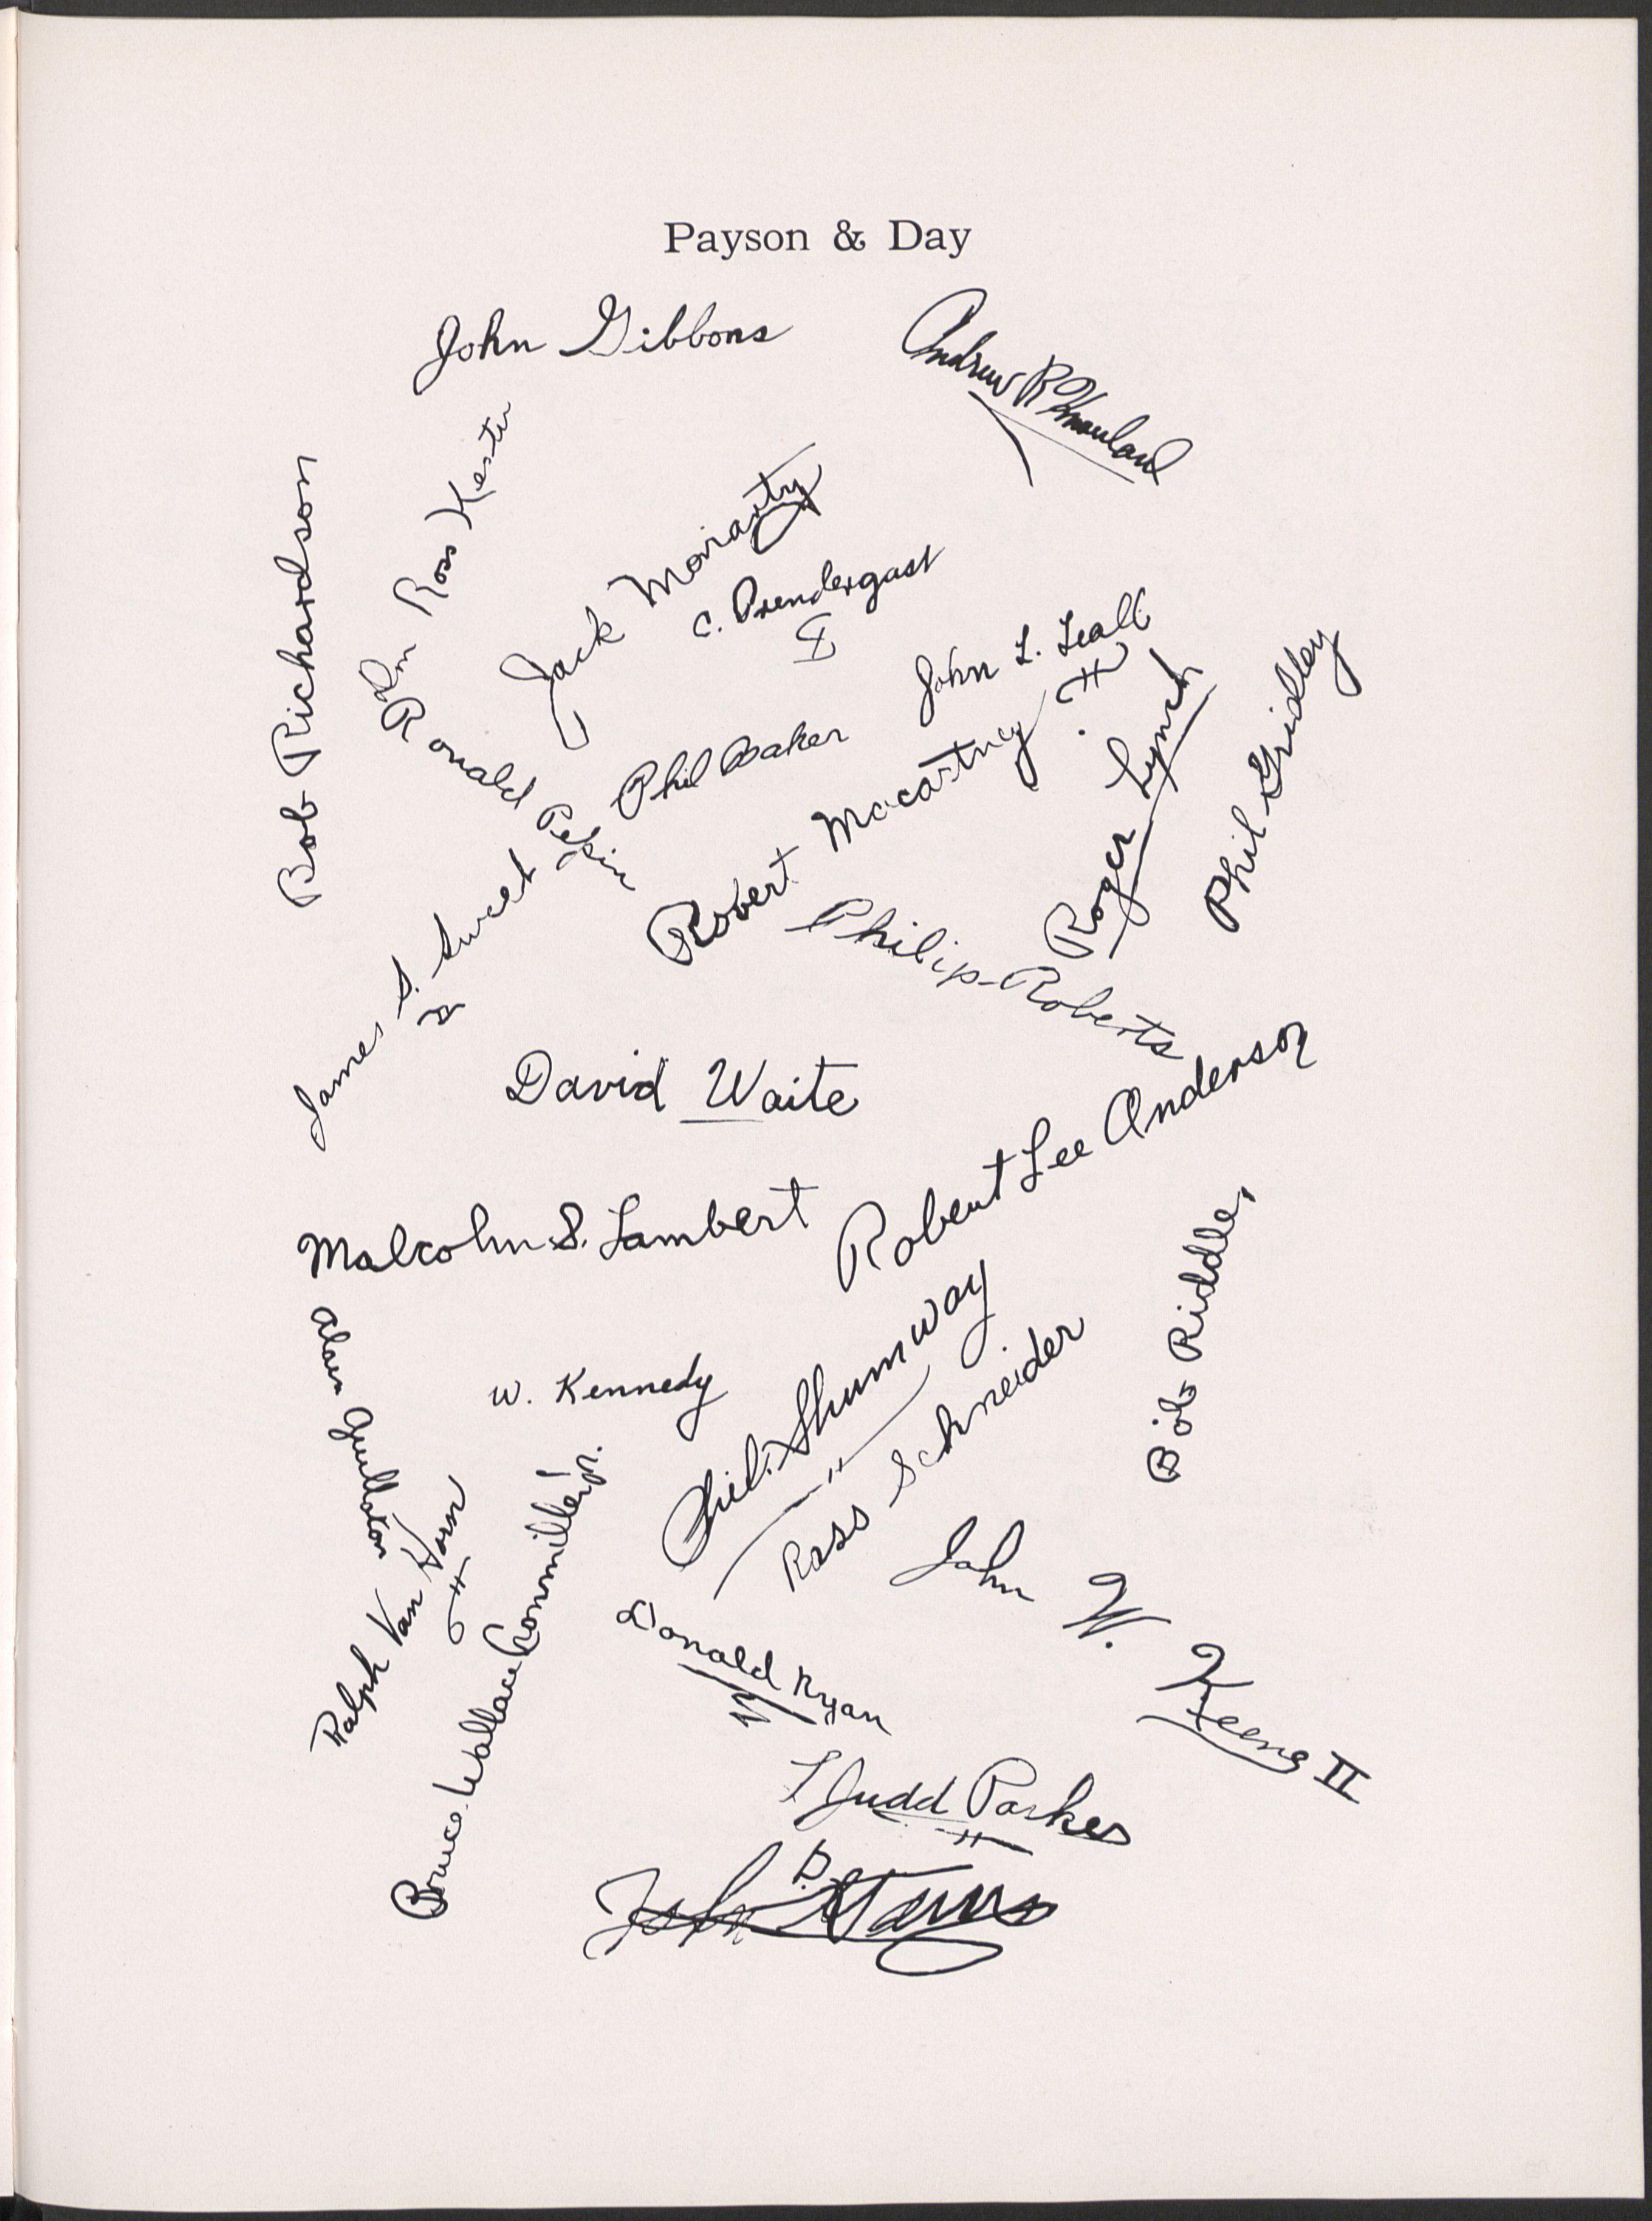 Payson & Day
John Gibbons
Andrew R
John Ross
Bob Richardson
Jack Moriarty
C. Prendergast
John L. Leall
Ronald Pekin
Phil Baker
Robert Mccartney
Roger Lynch
Phil Gridley
James S. Sweet
Philip Roberts
David Waite
Robert Lee Anderson
Malcolm S. Lambert
Bob Riddle,
Alan
W. Kennedy
Phil. Shumway
Ross Schneider
Ralph Van Horn
Bruce Wallace
John W. Keene II
Donald Ryan
Judd Parker
John D.